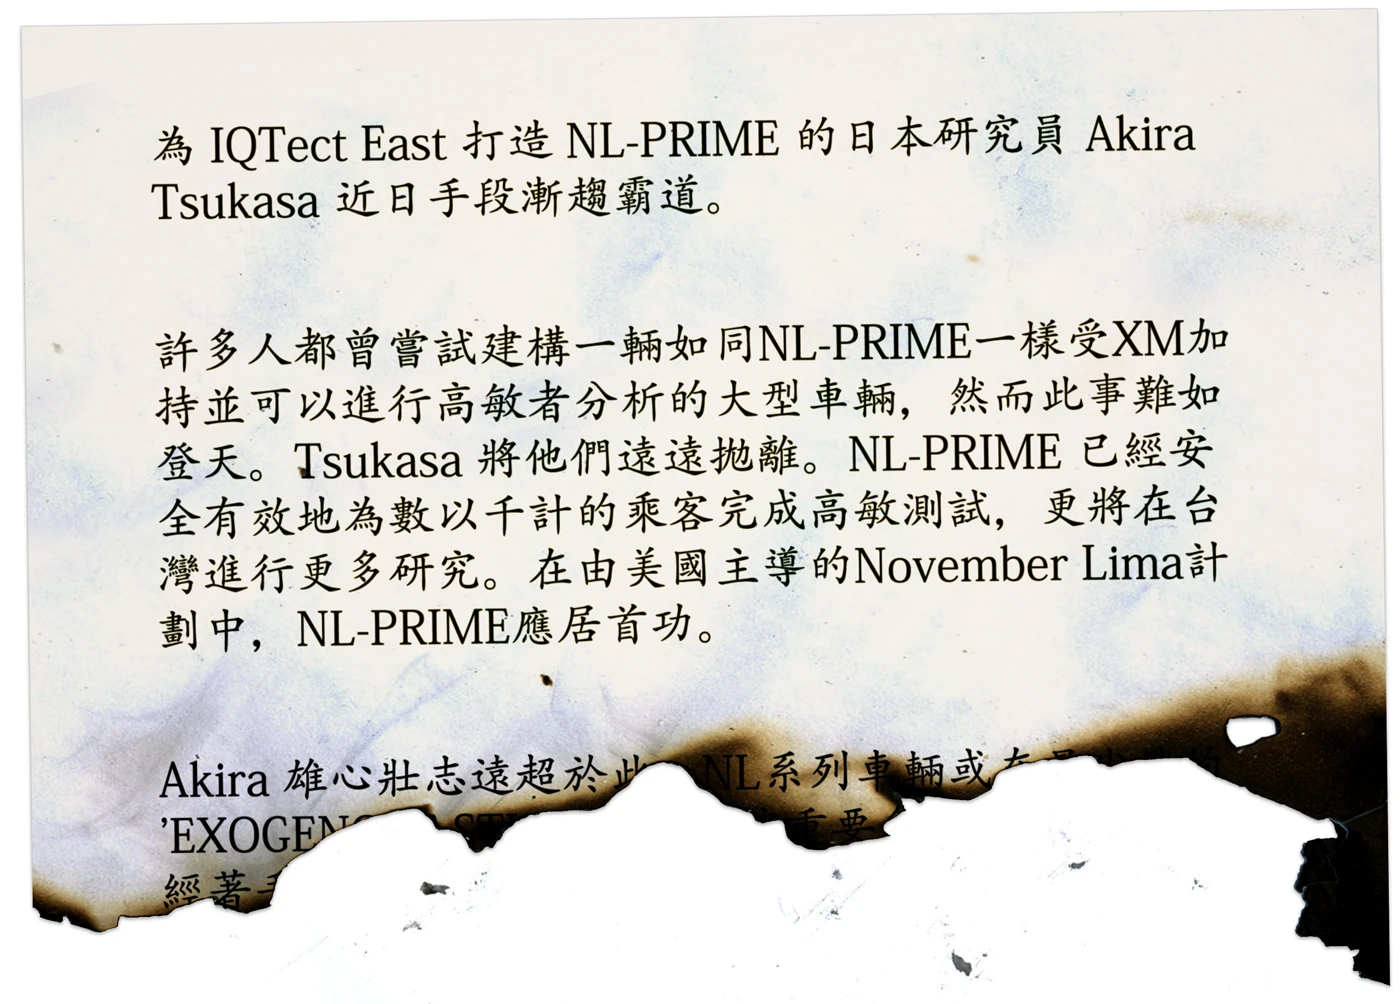 為 IQTect East 打造 NL-PRIME 的日本研究員 Akira
Tsukasa 近日手段漸趨霸道。
許多人都曾嘗試建構一輛如同NL-PRIME一樣受XM加
持並可以進行高敏者分析的大型車輛，然而此事難如
登天。Tsukasa 將他們遠遠拋離。NL-PRIME 已經安
全有效地為數以千計的乘客完成高敏測試，更將在台
灣進行更多研究。在由美國主導的November Lima計
劃中，NL-PRIME應居首功。
Akira 雄心壯志遠超於此 NL系列車輛或
'EXOGEN 重要
經著